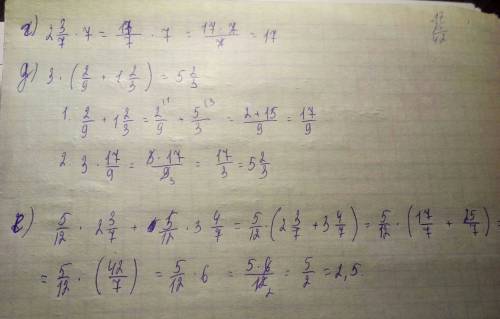 г) 2 3/7 · 7 = 17/7 · 7 = 17 · 7/7 = 17
д) 3 · (2/9 + 1 2/3) = 5 2/3
1. 2/9 + 1 2/3 = 2/9 + 5/3 = 2 + 15/9 = 17/9
2. 3 · 17/9 = 3 · 17/9 3 = 17/3 = 5 2/3
е) 5/12 · 2 3/7 + 5/12 · 3 4/7 = 5/12 · (2 3/7 + 3 4/7) = 5/12 · (17/7 + 25/7) =
= 5/12 · (42/7) = 5/12 · 6 = 5 · 6/12 2 = 5/2 = 2,5